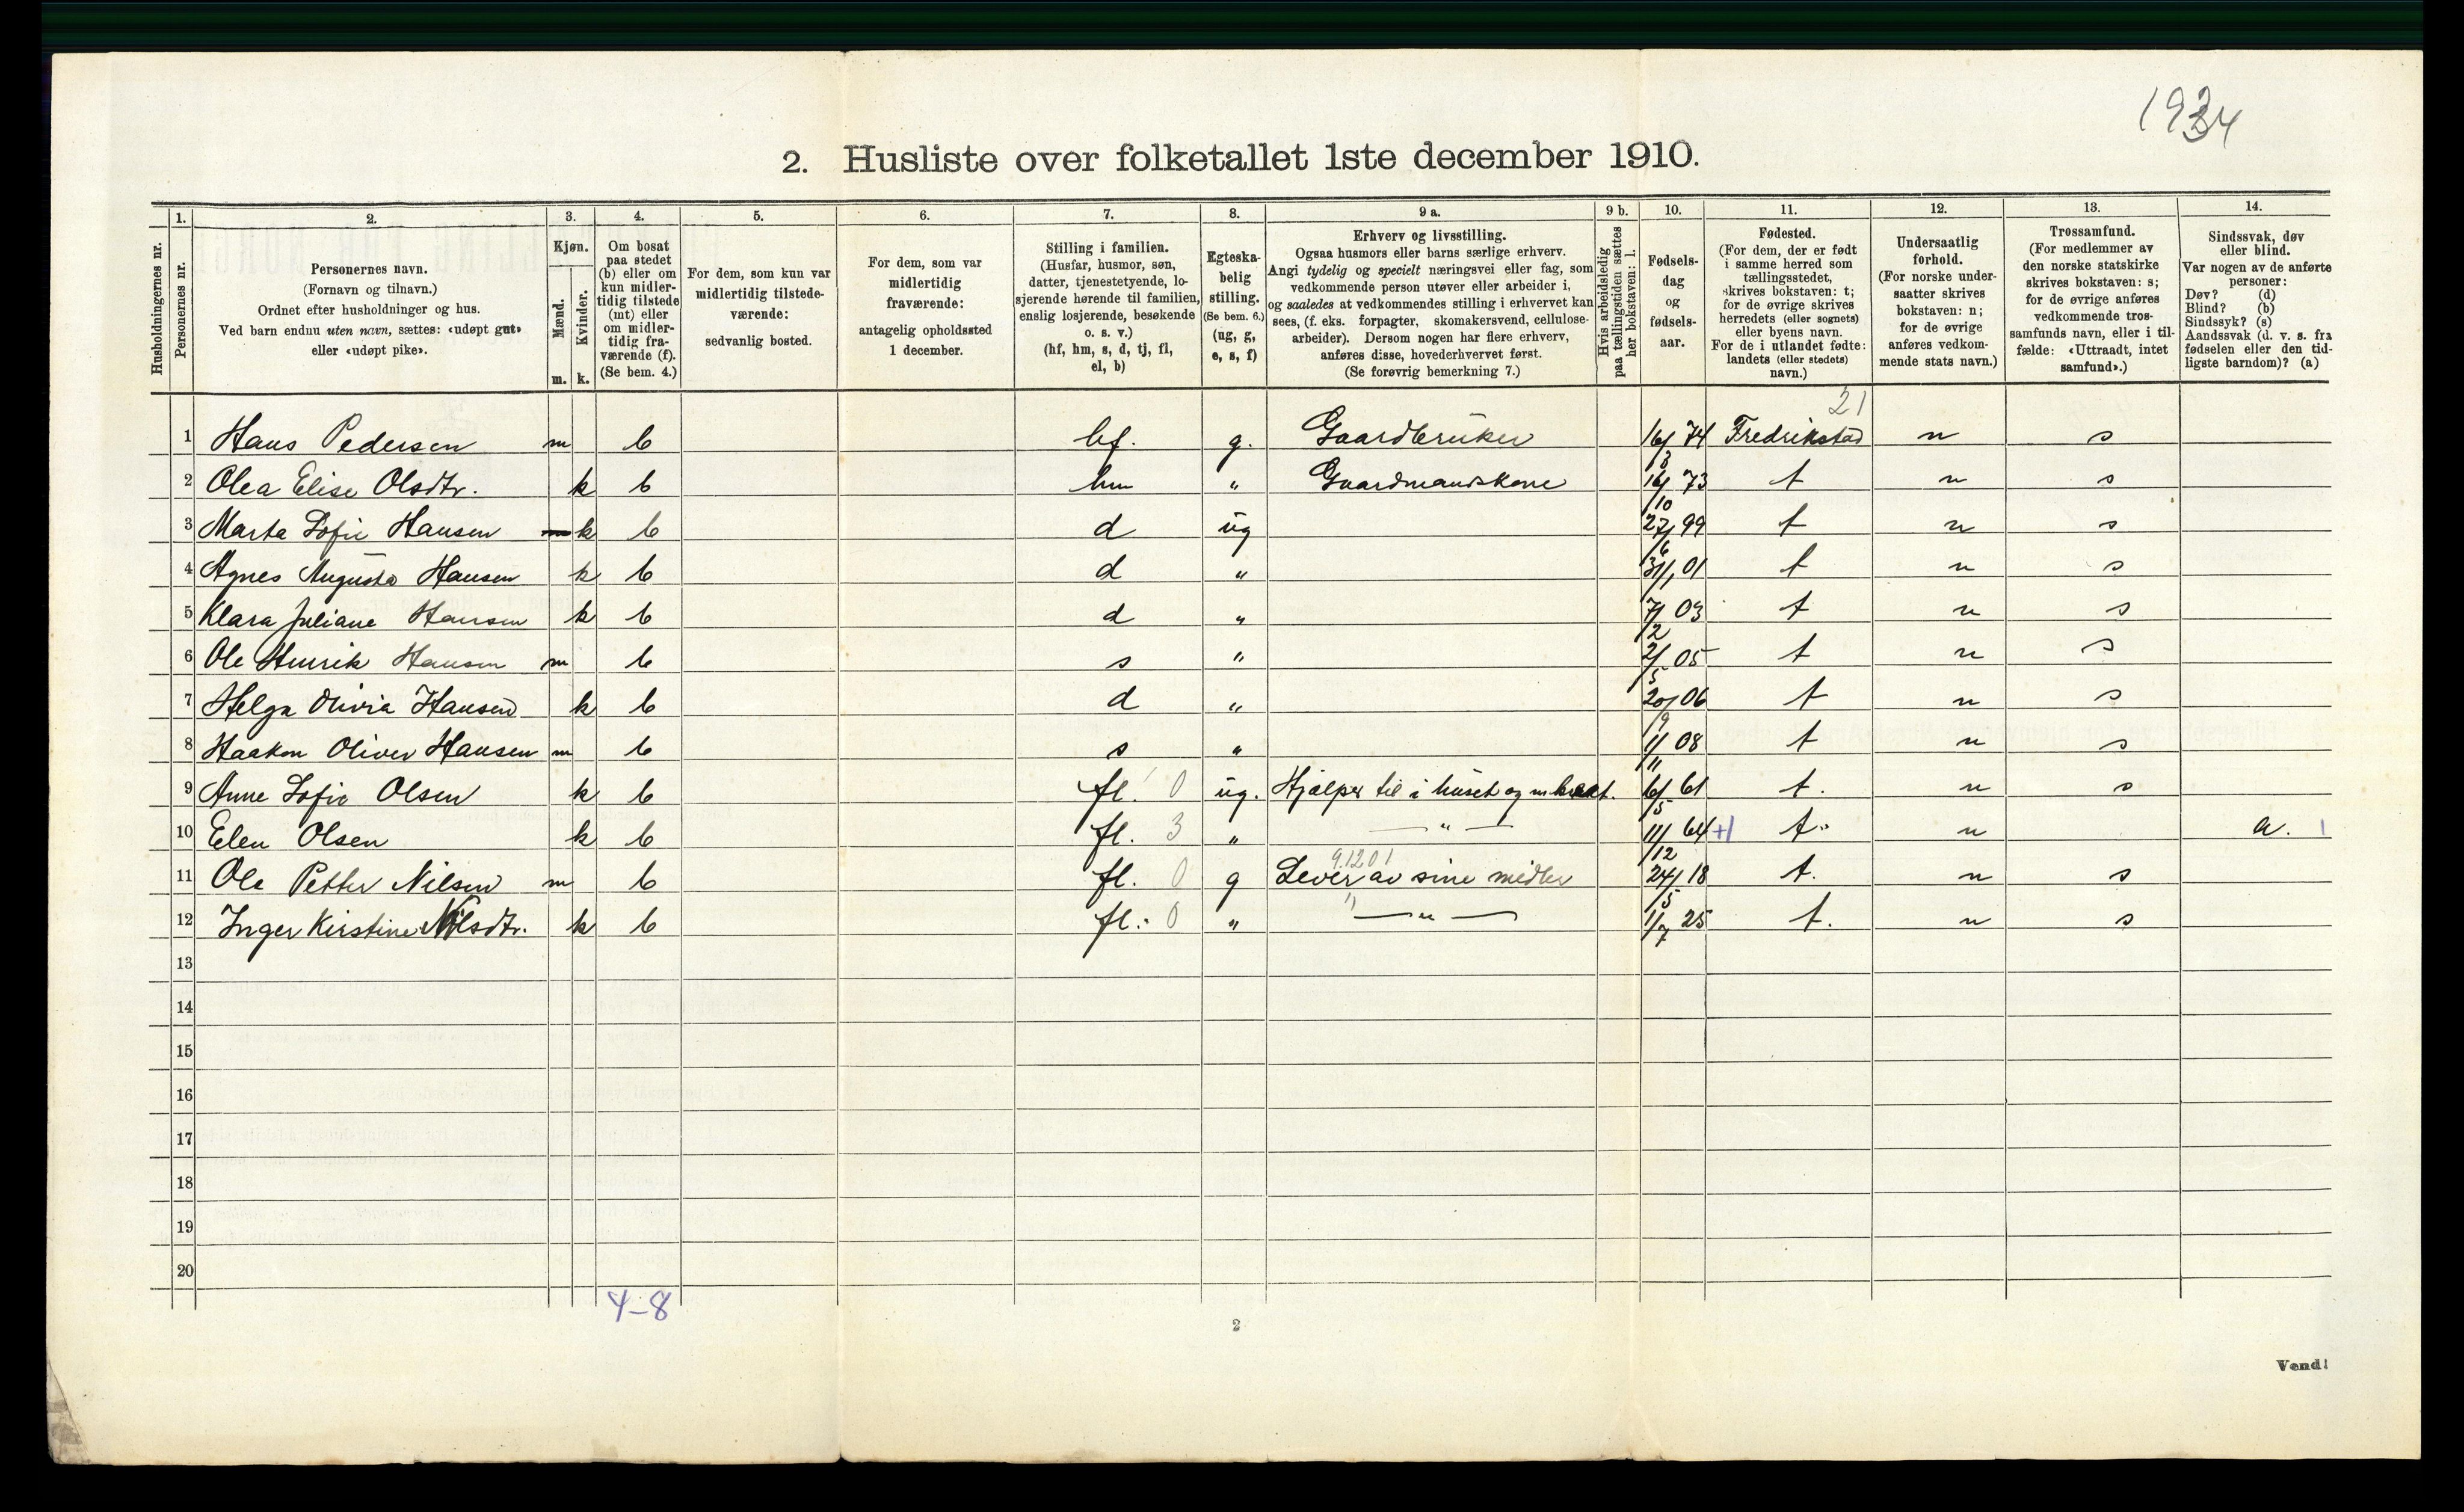 1934
2. Husliste over folketallet 1ste december 1910.
Husholdningernes nr.
1. Personernes nr.
2. Personernes navn. (Fornavn og tilnavn.) Ordnet efter husholdninger og hus. Ved barn endnu uten navn, sættes: «udøpt gut» eller «udøpt pike».
3. Kjøn. Mænd. m. Kvinder. k.
4. Om bosat paa stedet (b) eller om kun midlertidig tilstede (mt) eller om midlertidig fraværende (f). (Se bem. 4.)
5. For dem, som kun var midlertidig tilstedeværende: sedvanlig bosted.
6. For dem, som var midlertidig fraværende: antagelig opholdssted 1 december.
7. Stilling i familien. (Husfar, husmor, søn, datter, tjenestetyende, losjerende hørende til familien, enslig losjerende, besøkende o. s. v.) (hf, hm, s, d, tj, fl, el, b)
8. Egteskabelig stilling. (Se bem. 6.) (ug, g, e, s, f)
9 a. Erhverv og livsstilling. Ogsaa husmors eller barns særlige erhverv. Angi tydelig og specielt næringsvei eller fag, som vedkommende person utøver eller arbeider i, og saaledes at vedkommendes stilling i erhvervet kan sees, (f. eks. forpagter, skomakersvend, cellulosearbeider). Dersom nogen har flere erhverv, anføres disse, hovederhvervet først. (Se forøvrig bemerkning 7.)
9 b. Hvis arbeidsledig paa tællingstiden sættes her bokstaven: l.
10. Fødselsdag og fødselsaar.
11. Fødested. (For dem, der er født i samme herred som tællingsstedet, skrives bokstaven: t; for de øvrige skrives herredets (eller sognets) eller byens navn. For de i utlandet fødte: landets (eller stedets) navn.)
12. Undersaatlig forhold. (For norske undersaatter skrives bokstaven: n; for de øvrige anføres vedkommende stats navn.)
13. Trossamfund. (For medlemmer av den norske statskirke skrives bokstaven: s; for de øvrige anføres vedkommende trossamfunds navn, eller i tilfælde: «Uttraadt, intet samfund».)
14. Sindssvak, døv eller blind. Var nogen av de anførte personer: Døv? (d) Blind? (b) Sindssyk? (s) Aandssvak (d. v. s. fra fødselen eller den tidligste barndom)? (a)
21
1 Hans Pedersen m b hf. g. Gaardbruker 16/3 74 Fredrikstad n s
2 Olea Elise Olsdtr. k b hm " Gaardmandskone 16/10 73 t n s
3 Marta Sofie Hansen k b d ug 27/6 99 t n s
4 Agnes Augusta Hansen k b d " 31/1 01 t n s
5 Klara Juliane Hansen k b d " 7/2 03 t n s
6 Ole Henrik Hansen m b s " 2/5 05 t n s
7 Helga Olivia Hansen k b d " 20/9 06 t n s
8 Haakon Oliver Hansen m b s " 1/11 08 t n s
9 Anne Sofie Olsen k b fl. 0 ug. Hjælper til i huset og m 6/5 61 t. n s
10 Elen Olsen k b fl. 3 " — " — 11/12 64 +1 t. n a. 1
9.1201
11 Ole Petter Nilsen m b fl. 0 g Lever av sine midler 24/5 18 t. n s
12 Inger Kirstine Nilsdtr. k b fl. 0 " " — " — 1/7 25 t. n s
13
14
15
16
17
18
19
20
4-8
2
Vend!